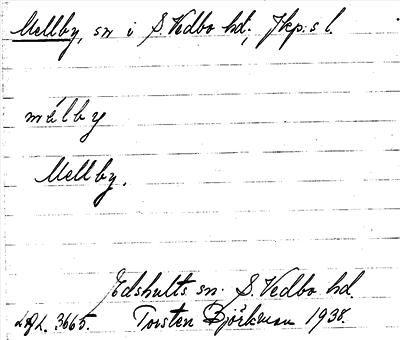 Mellby, sn i S. Vedbo hd, Jkp:s l.
mélby
Mellby.
Edshults sn. S. Vedbo hd.
3665. Torsten Björkman 1938.